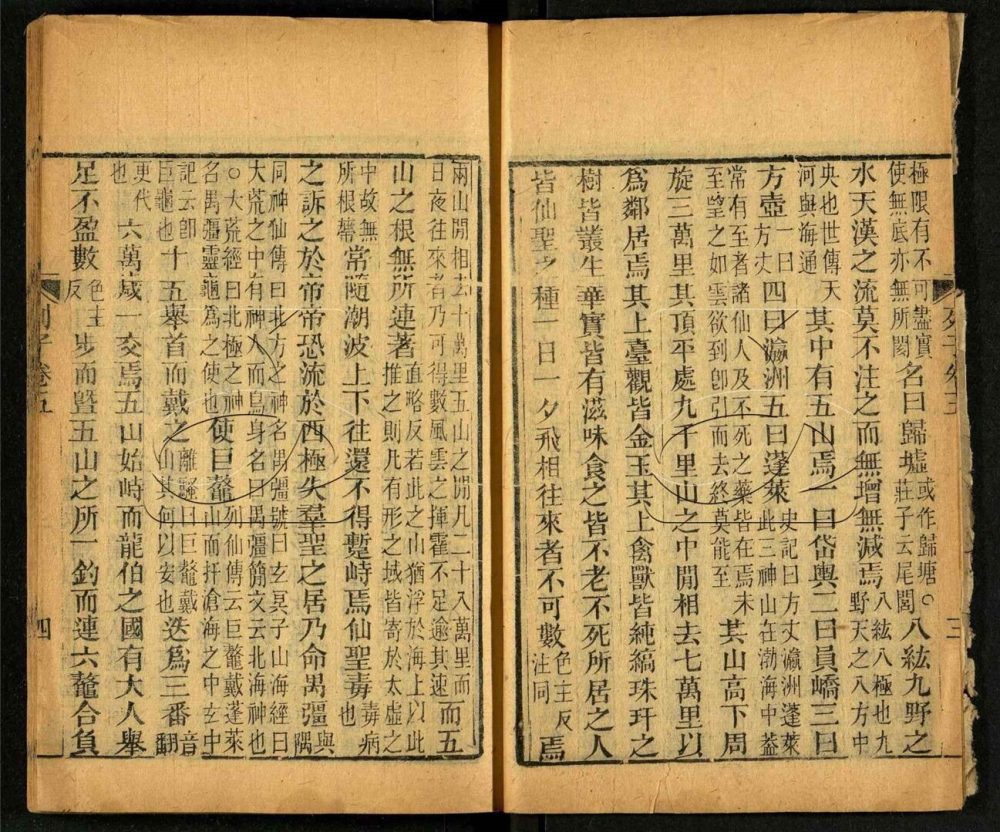 極限有不可盡實使無底亦無所閡名曰歸墟或作歸塘。莊子云尾閭八紘九野之
水天漢之流莫不注之而無增無減焉八紘八極也九野天之八方中
央也世傳天河與海通其中有五山焉一曰岱輿二曰員嶠三曰
方壺一曰方丈四曰瀛洲五曰蓬萊史記曰方丈瀛洲蓬萊此三神山在渤海中蓋
常有至者諸仙人及不死之藥皆在焉未至望之如雲欲到卽引而去終莫能至其山高下周
旋三萬里其頂平處九千里山之中閒相去七萬里以
爲鄰居焉其上臺觀皆金玉其上禽獸皆純縞珠玕之
樹皆叢生華實皆有滋味食之皆不老不死所居之人
皆仙聖之種一日一夕飛相往來者不可數色主反注同焉
兩山閒相去七萬里五山之閒凡二十八萬里而日夜往來者乃可得數風雲之揮霍不足逾其速而五
山之根無所連著直略反若此之山猶浮於海上以此推之則凡有形之域皆寄於太虛之
中故無所根蔕常隨潮波上下往還不得蹔峙焉仙聖毒毒病也
之訴之於帝帝恐流於西極失羣聖之居乃命禺彊與隅
同神仙傳曰北方之神名禺彊號曰玄冥子山海經曰大荒之中有神人面鳥身名曰禺彊簡文云北海神也
。大荒經曰北極之神名禺彊靈龜爲之使也使巨鼇列仙傳云巨鼇戴蓬萊山而抃滄海之中玄中
記云卽巨龜也十五舉首而戴之離騷曰巨鼇戴山其何以安也迭爲三番音翻
更代也六萬歲一交焉五山始峙而龍伯之國有大人舉
足不盈數色主反步而曁五山之所一釣而連六鼇合負
列子卷五
四
三